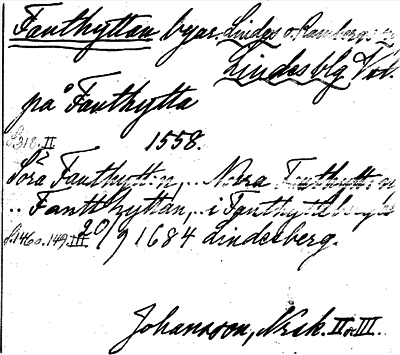 Fanthyttan byar Lindes o. Ramberg
Lindesblg. Vst.
på Fanthytta
S.318.II 1558.
Södra Fanthyttan, .. Norra Fanthyttan
.. Fantthyttan, .. i Fanthyttebergs
S.146 o. 149.III 20/9 1684 Lindesberg.
Johansson, Norsk. II o. III.